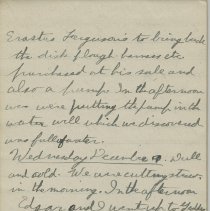 Erastus Ferguson's to bring back
the disk plough harness etc
purchased at his sale and
also a pump. In the afternoon
we were putting the pump in the
water well which we discovered
was full of water.
Wednesday December 9. Dull
and cold. We were cutting straw
in the morning. In the afternoon
Edgar and I went up to